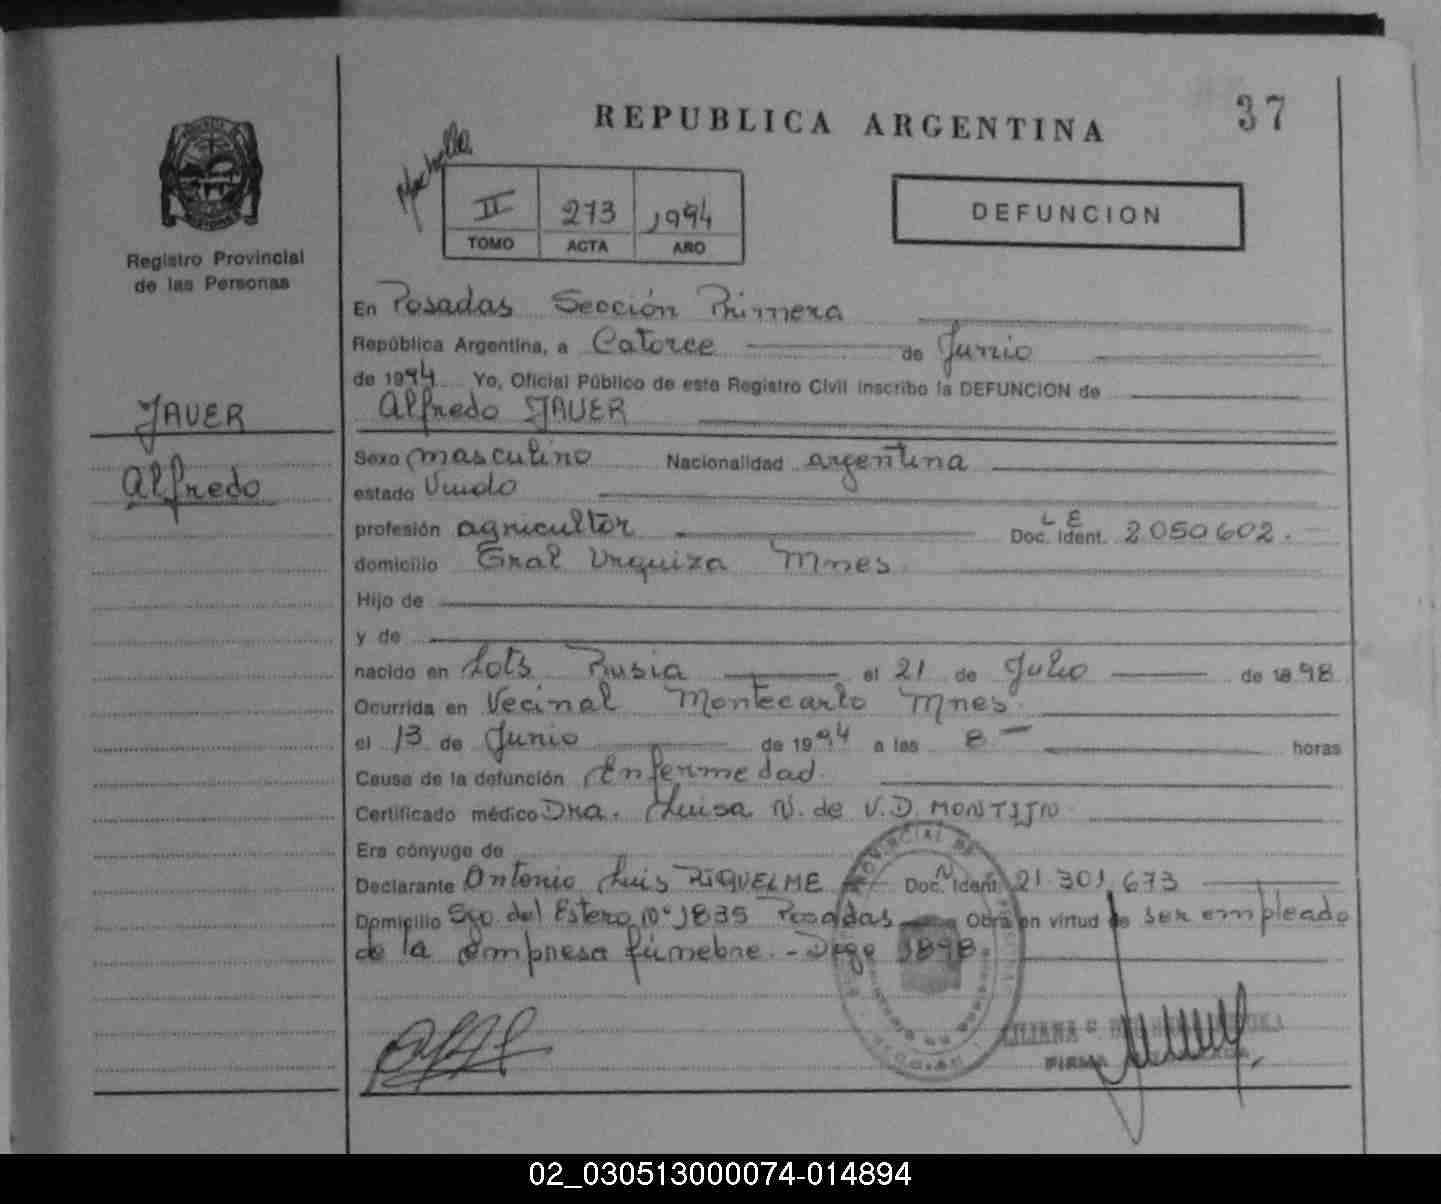 37
REPUBLICA ARGENTINA
II 273 1994
TOMO ACTA AÑO
DEFUNCION
Registro Provincial
de las Personas
JAUER
Alfredo
En Posadas Sección Primera
República Argentina, a Catorce de Junio
de 1994 Yo, Oficial Público de este Registro Civil inscribo la DEFUNCION de
Alfredo JAUER
Sexo masculino Nacionalidad argentina
estado Viudo
profesión agricultor Doc. Ident. L E 2050602.
domicilio Gral Urquiza Mnes.
Hijo de
y de
nacido en Lots Rusia el 21 de Julio de 1898
Ocurrida en Vecinal Montecarlo Mnes.
el 13 de Junio de 1994 a las 8 horas
Causa de la defunción Enfermedad.
Certificado médico Dra. Luisa N. de V.D. MONTIJN
Era cónyuge de
Declarante Antonio Luis RIQUELME Doc. Ident. 21.301.673
Domicilio Sgo. del Estero Nº 1835 Posadas Obra en virtud de ser empleado
de la empresa fúnebre. - Digo 1898
LILIANA
FIRMA
02_030513000074-014894